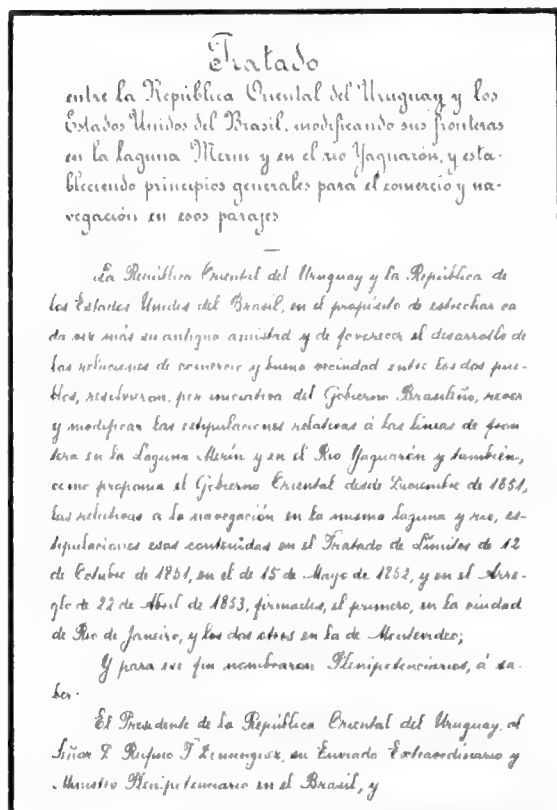 Tratado
entre la República Oriental del Uruguay y los
Estados Unidos del Brasil, modificando sus fronteras
en la laguna Merin y en el río Yaguarón, y esta-
bleciendo principios generales para el comercio y na-
vegación en esos parajes
La República Oriental del Uruguay y la República de
los Estados Unidos del Brasil, en el propósito de estrechar ca
da vez más su antigua amistad y de favorecer el desarrollo de
las relaciones de comercio y buena vecindad entre los dos pue-
blos, resolvieron, por iniciativa del Gobierno Brasileño, rever
y modificar las estipulaciones relativas á las líneas de fron
tera en la Laguna Merín y en el Río Yaguarón y también,
como proponia el Gobierno Oriental desde Diciembre de 1851,
las relativas a la navegación en la misma laguna y rio, es-
tipulaciones esas contenidas en el Tratado de Límites de 12
de Octubre de 1851, en el de 15 de Mayo de 1852, y en el Arre-
glo de 22 de Abril de 1853, firmados, el primero, en la ciudad
de Rio de Janeiro, y los dos otros en la de Montevideo;
Y para ese fin nombraron Plenipotenciarios, á sa-
ber.
El Presidente de la República Oriental del Uruguay, al
Señor D Rufino T Dominguez, su Enviado Extraordinario y
Ministro Plenipotenciario en el Brasil, y